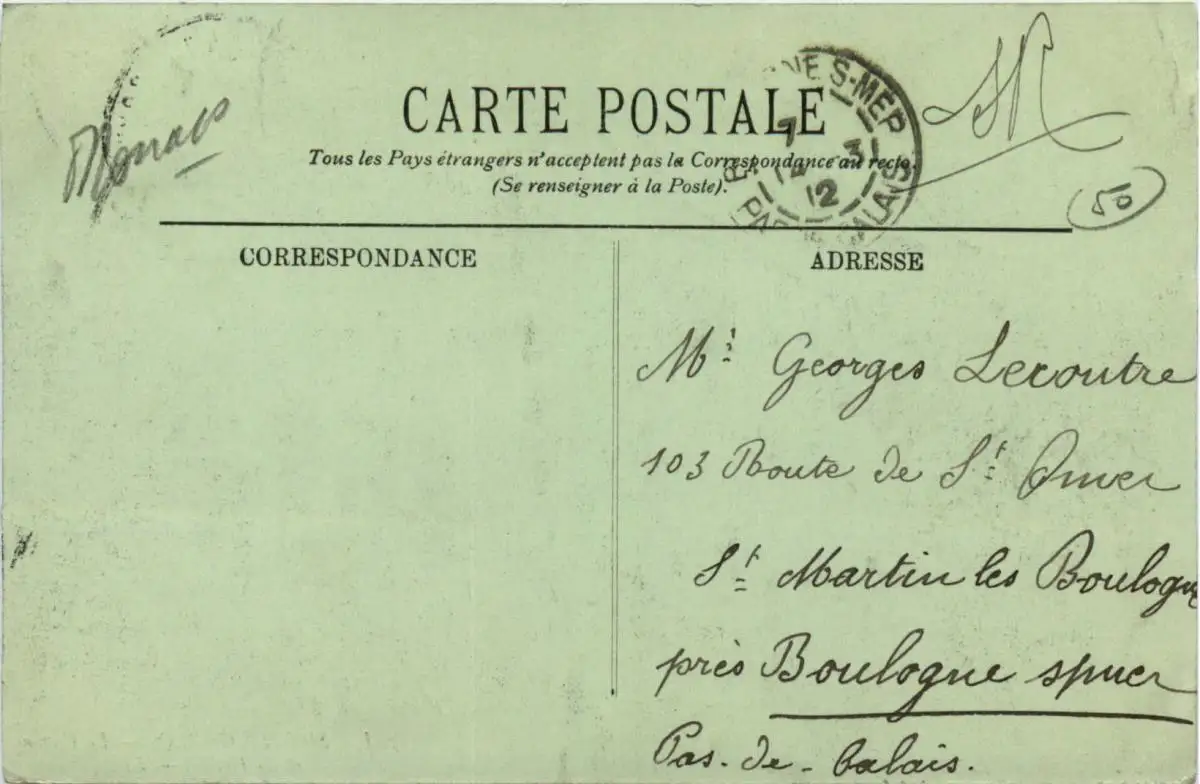 CARTE POSTALE
Tous les Pays étrangers n'acceptent pas la Correspondance au recto.
(Se renseigner à la Poste).
Monaco
S-MER
7
3
12
50
CORRESPONDANCE
ADRESSE
Mr Georges Lecoutre
103 Route de St Omer
St Martin les Boulogne
près Boulogne s/mer
Pas-de-Calais.